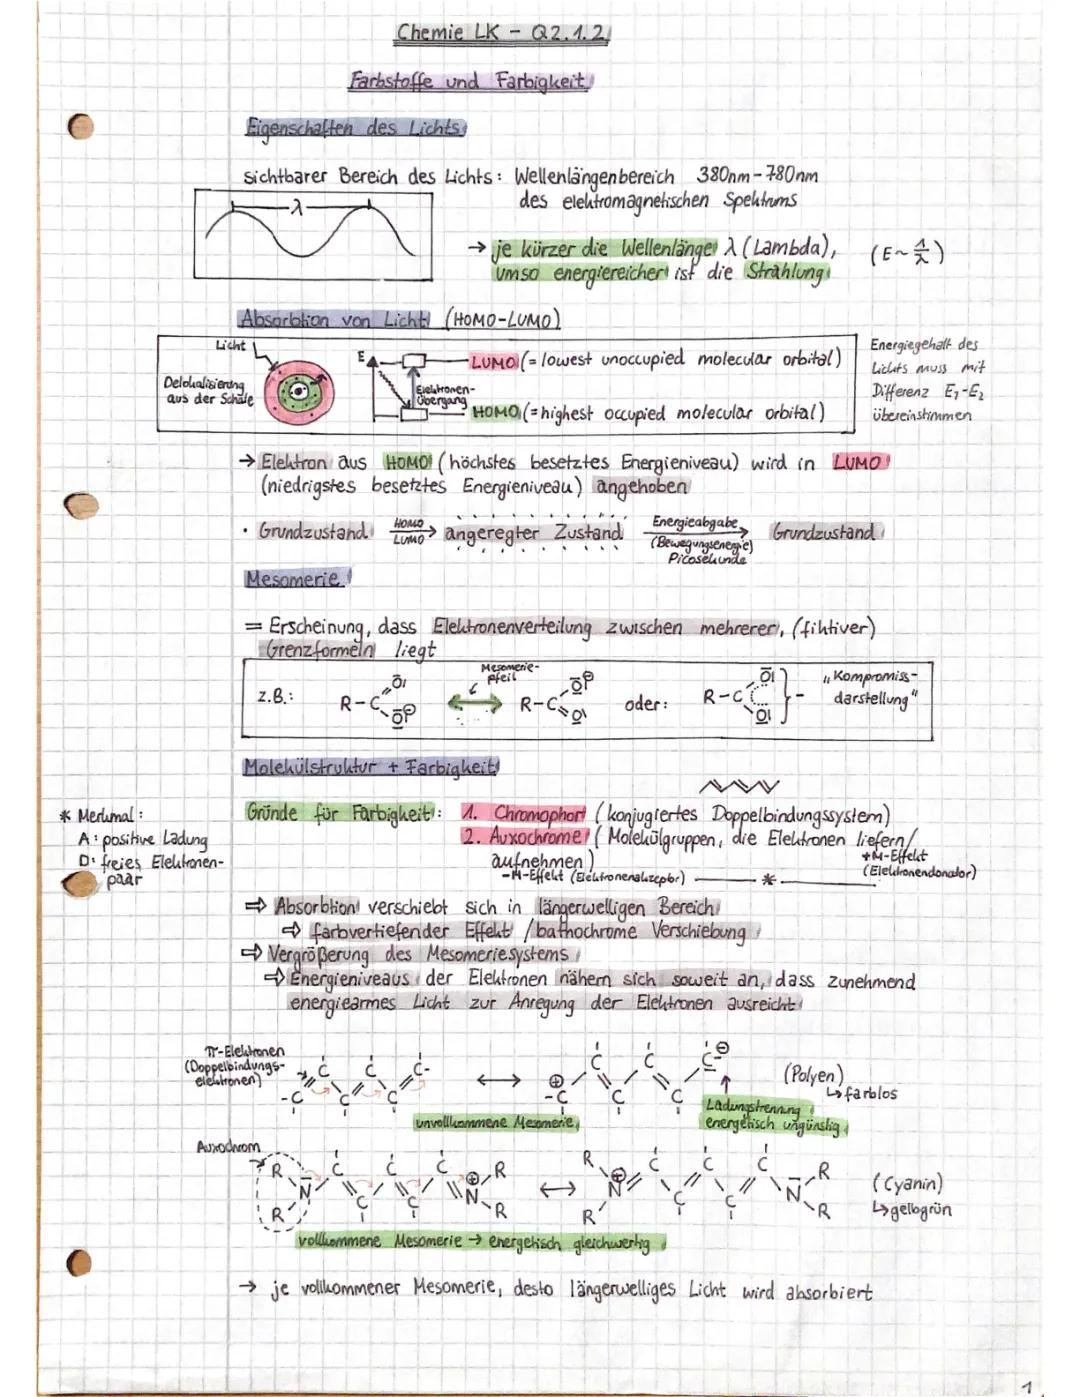 Chemie LK - Q2.1.2
Farbstoffe und Farbigkeit
Eigenschaften des Lichts
sichtbarer Bereich des Lichts: Wellenlängenbereich 380nm-780nm
des elektromagnetischen Spektrums
λ
→ je kürzer die Wellenlänge λ (Lambda), (E~1/λ)
umso energiereicher ist die Strahlung
Absorbtion von Licht (HOMO-LUMO)
Licht
Delokalisierung
aus der Schale
E
Elektronen-
übergang
LUMO (= lowest unoccupied molecular orbital)
HOMO (= highest occupied molecular orbital)
Energiegehalt des
Lichts muss mit
Differenz E₁-E₂
übereinstimmen
→ Elektron aus HOMO (höchstes besetztes Energieniveau) wird in LUMO
(niedrigstes besetztes Energieniveau) angehoben
· Grundzustand HOMO LUMO → angeregter Zustand Energieabgabe (Bewegungsenergie) Picosekunde → Grundzustand
Mesomerie
= Erscheinung, dass Elektronenverteilung zwischen mehrerer, (fiktiver)
Grenzformeln liegt
Mesomerie-
pfeil
z.B.: R-C O O⊖ ↔ R-C O⊖ O oder: R-C O O } - "Kompromiss-
darstellung"
Molekülstruktur + Farbigkeit
Gründe für Farbigkeit: 1. Chromophor (konjugiertes Doppelbindungssystem)
2. Auxochrome (Molekülgruppen, die Elektronen liefern/
aufnehmen)
+M-Effekt
(Elektronendonator)
-M-Effekt (Elektronenakzeptor) * 
* Merkmal:
A: positive Ladung
D: freies Elektronen-
paar
⇒ Absorbtion verschiebt sich in längerwelligen Bereich
⇒ farbvertiefender Effekt / bathochrome Verschiebung
⇒ Vergrößerung des Mesomeriesystems
⇒ Energieniveaus der Elektronen nähern sich soweit an, dass zunehmend
energiearmes Licht zur Anregung der Elektronen ausreicht
π-Elektronen
(Doppelbindungs-
elektronen)
C C C C- ↔ C C C⊖
-C C C ⊕ -C C C
(Polyen)
↳ farblos
unvollkommene Mesomerie
Ladungstrennung
energetisch ungünstig
Auxochrom
R N R C C C C C ⊕N R R ↔ R ⊕N R C C C C C N R R
(Cyanin)
↳ gelbgrün
vollkommene Mesomerie → energetisch gleichwertig
→ je vollkommener Mesomerie, desto längerwelliges Licht wird absorbiert
1